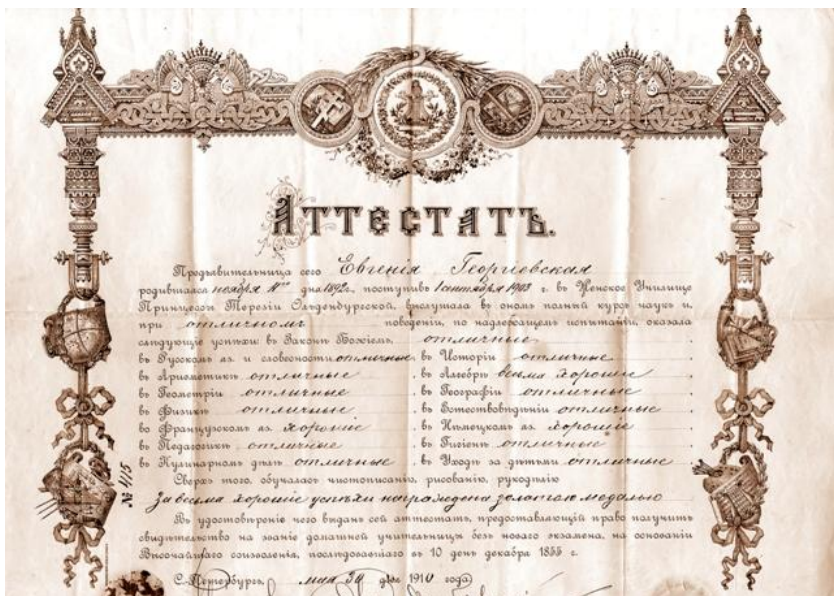 АТТЕСТАТЪ.
Предъявительница сего Евгенія Георгіевская
родившаяся ноября дня 1892г., поступивъ 1 сентября 1903 г. въ Женское Училище
Принцессы Терезіи Ольденбургской, выслушала въ ономъ полный курсъ наукъ и,
при отличномъ поведеніи, по надлежащемъ испытаніи, оказала
слѣдующіе успѣхи: въ Законѣ Божіемъ, отличные.
въ Русскомъ яз. и словесности отличные. въ Исторіи отличные.
въ Ариѳметикѣ отличные. въ Алгебрѣ весьма хорошіе
въ Геометріи отличные. въ Географіи отличные.
въ Физикѣ отличные. въ Естествовѣдѣніи отличные.
во Французскомъ яз. хорошіе. въ Нѣмецкомъ яз. хорошіе.
въ Педагогикѣ отличные. въ Гигіенѣ отличные.
въ Кулинарномъ дѣлѣ отличные. въ Уходѣ за дѣтьми отличные.
№ 415
Сверхъ того, обучалась чистописанію, рисованію, рукодѣлію
За весьма хорошіе успѣхи награждена золотою медалью
Въ удостовѣреніе чего выданъ сей аттестатъ, предоставляющій право получить
свидѣтельство на званіе домашней учительницы безъ новаго экзамена, на основаніи
Высочайшаго соизволенія, послѣдовавшаго въ 10 день декабря 1855 г.
С.-Петербургъ, мая 30 дня 1910 года